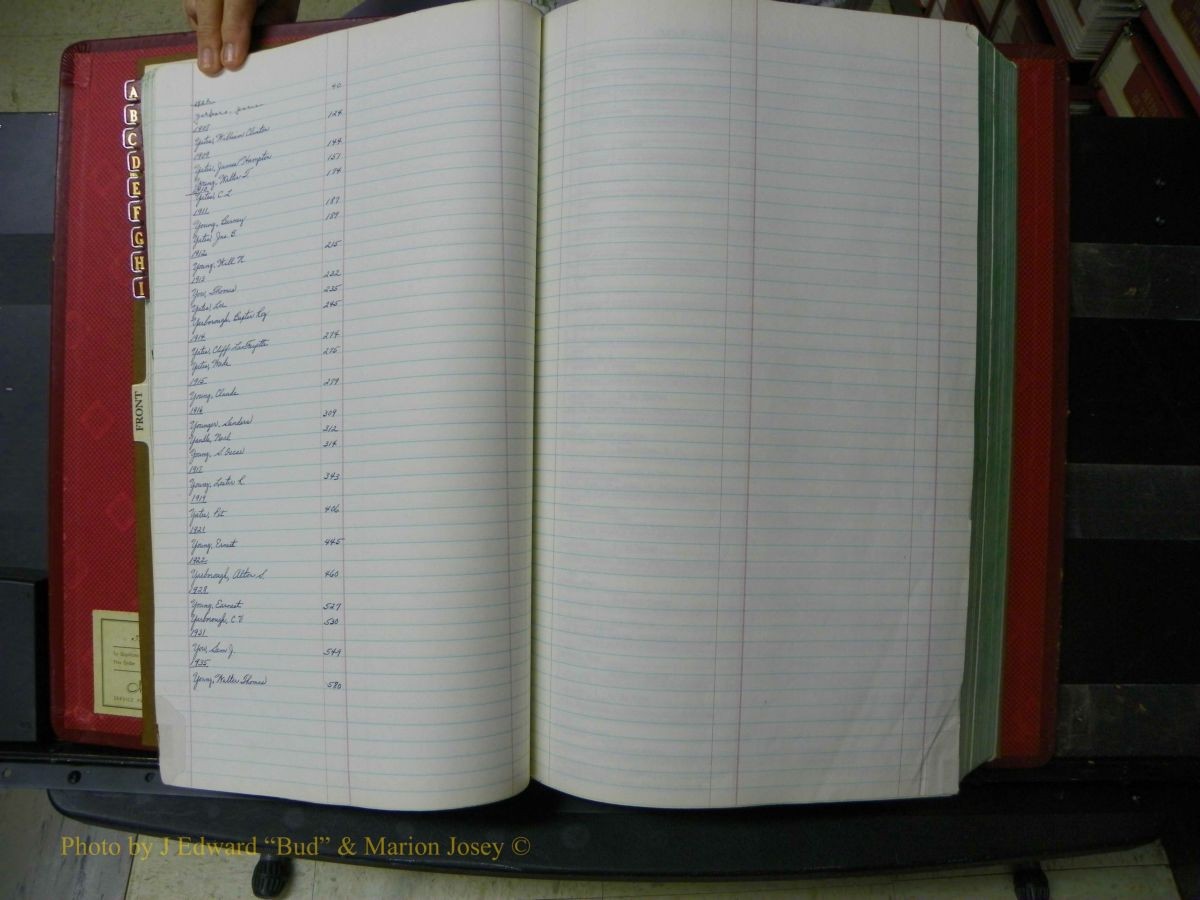 A
B
C
D
E
F
G
H
I
FRONT
40
1908 124
Yates, William Clinton
1909 144
Yates, James Hampton 157
Young, Walter T. 174
Yates, C L
1911 187
Young, Barney 189
Yates, Jas. B.
1912 215
Young, Will N.
1913 232
Yow, Thomas 235
Yates, Lee 245
Yarborough, Baxter Roy
1914 274
Yates, Cliff LaFayette 275
Yates, Wade
1915 289
Young, Claude
1916
Younger, Sanders 309
Yandle, 312
Young, S. Oscar 314
1917
Young, Lester R. 343
1919
Yates, 406
1921
Young, Ernest 445
1922
Yarborough, Alton S. 460
1928
Young, Earnest 527
Yarborough, C. V. 530
1931
Yow, Sam J. 549
1935
Young, Walter Thomas 580
Photo by J Edward “Bud” & Marion Josey ©